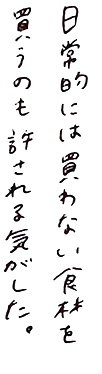 日常的には買わない食材を
買うのも許される気がした。